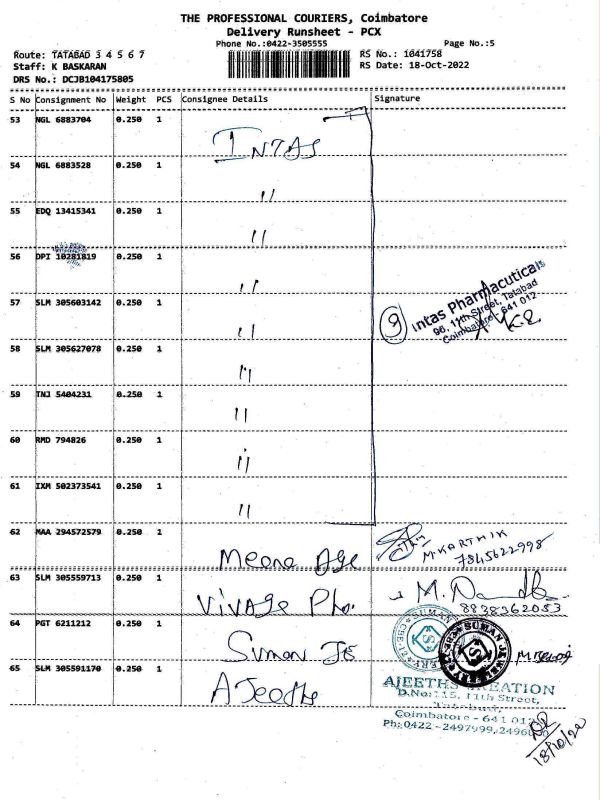 THE PROFESSIONAL COURIERS, Coimbatore
Delivery Runsheet - PCX
Phone No.:0422-3505555 Page No.:5
Route: TATABAD 3 4 5 6 7 RS No.: 1041758
Staff: K BASKARAN RS Date: 18-Oct-2022
DRS No.: DCJB104175805
S No Consignment No Weight PCS Consignee Details Signature
53 NGL 6883704 0.250 1 INTAS
54 NGL 6883528 0.250 1 "
55 EDQ 13415341 0.250 1 "
56 DPI 10281819 0.250 1 "
57 SLM 305603142 0.250 1 "
9 Intas Pharmacuticals
96, 11th Street, Tatabad
Coimbatore - 641 012
58 SLM 305627078 0.250 1 "
59 TNJ 5404231 0.250 1 "
60 RMD 794826 0.250 1 "
61 IXM 502373541 0.250 1 "
62 MAA 294572579 0.250 1 Meena Age M KARTHIK
7845622998
63 SLM 305559713 0.250 1 Vivage Pha.
8838362053
64 PGT 6211212 0.250 1 Suman JE
SUMAN JEWELLERY
65 SLM 305591170 0.250 1
AJEETHS CREATION
D.No:115, 11th Street,
Tatabad,
Coimbatore - 641 012
Ph:0422 - 2497999,
18/10/22